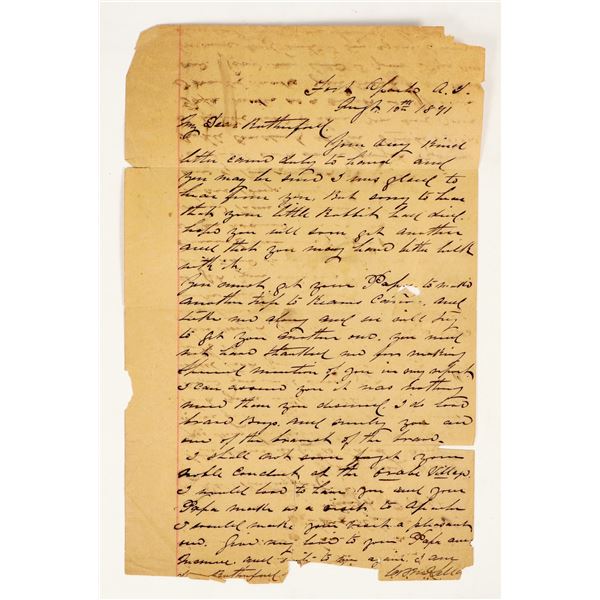 Fort Apache A. T.
Augt 10th 1891
My Dear Rutherford
Your very kind
letter came duly to hand and
you may be sure I was glad to
hear from you. But sorry to hear
that your little Rabbit had died.
hope you will soon get another
and that you may have better luck
with it.
You must get your Papa to make
another trip to Keams Canon, and
take me along and we will try
to get you another one. you need
not have thanked me for making
special mention of you in my report
I can assure you it was nothing
more than you deserved. I do love
brave Boys. and surely you are
one of the bravest of the brave.
I shall not soon forget your
noble conduct at the Oraibi Village.
I would love to have you and your
Papa make us a visit to Apache
I would make your visit a pleasant
one. Give my love to your Papa and
Mamma and
Rutherford